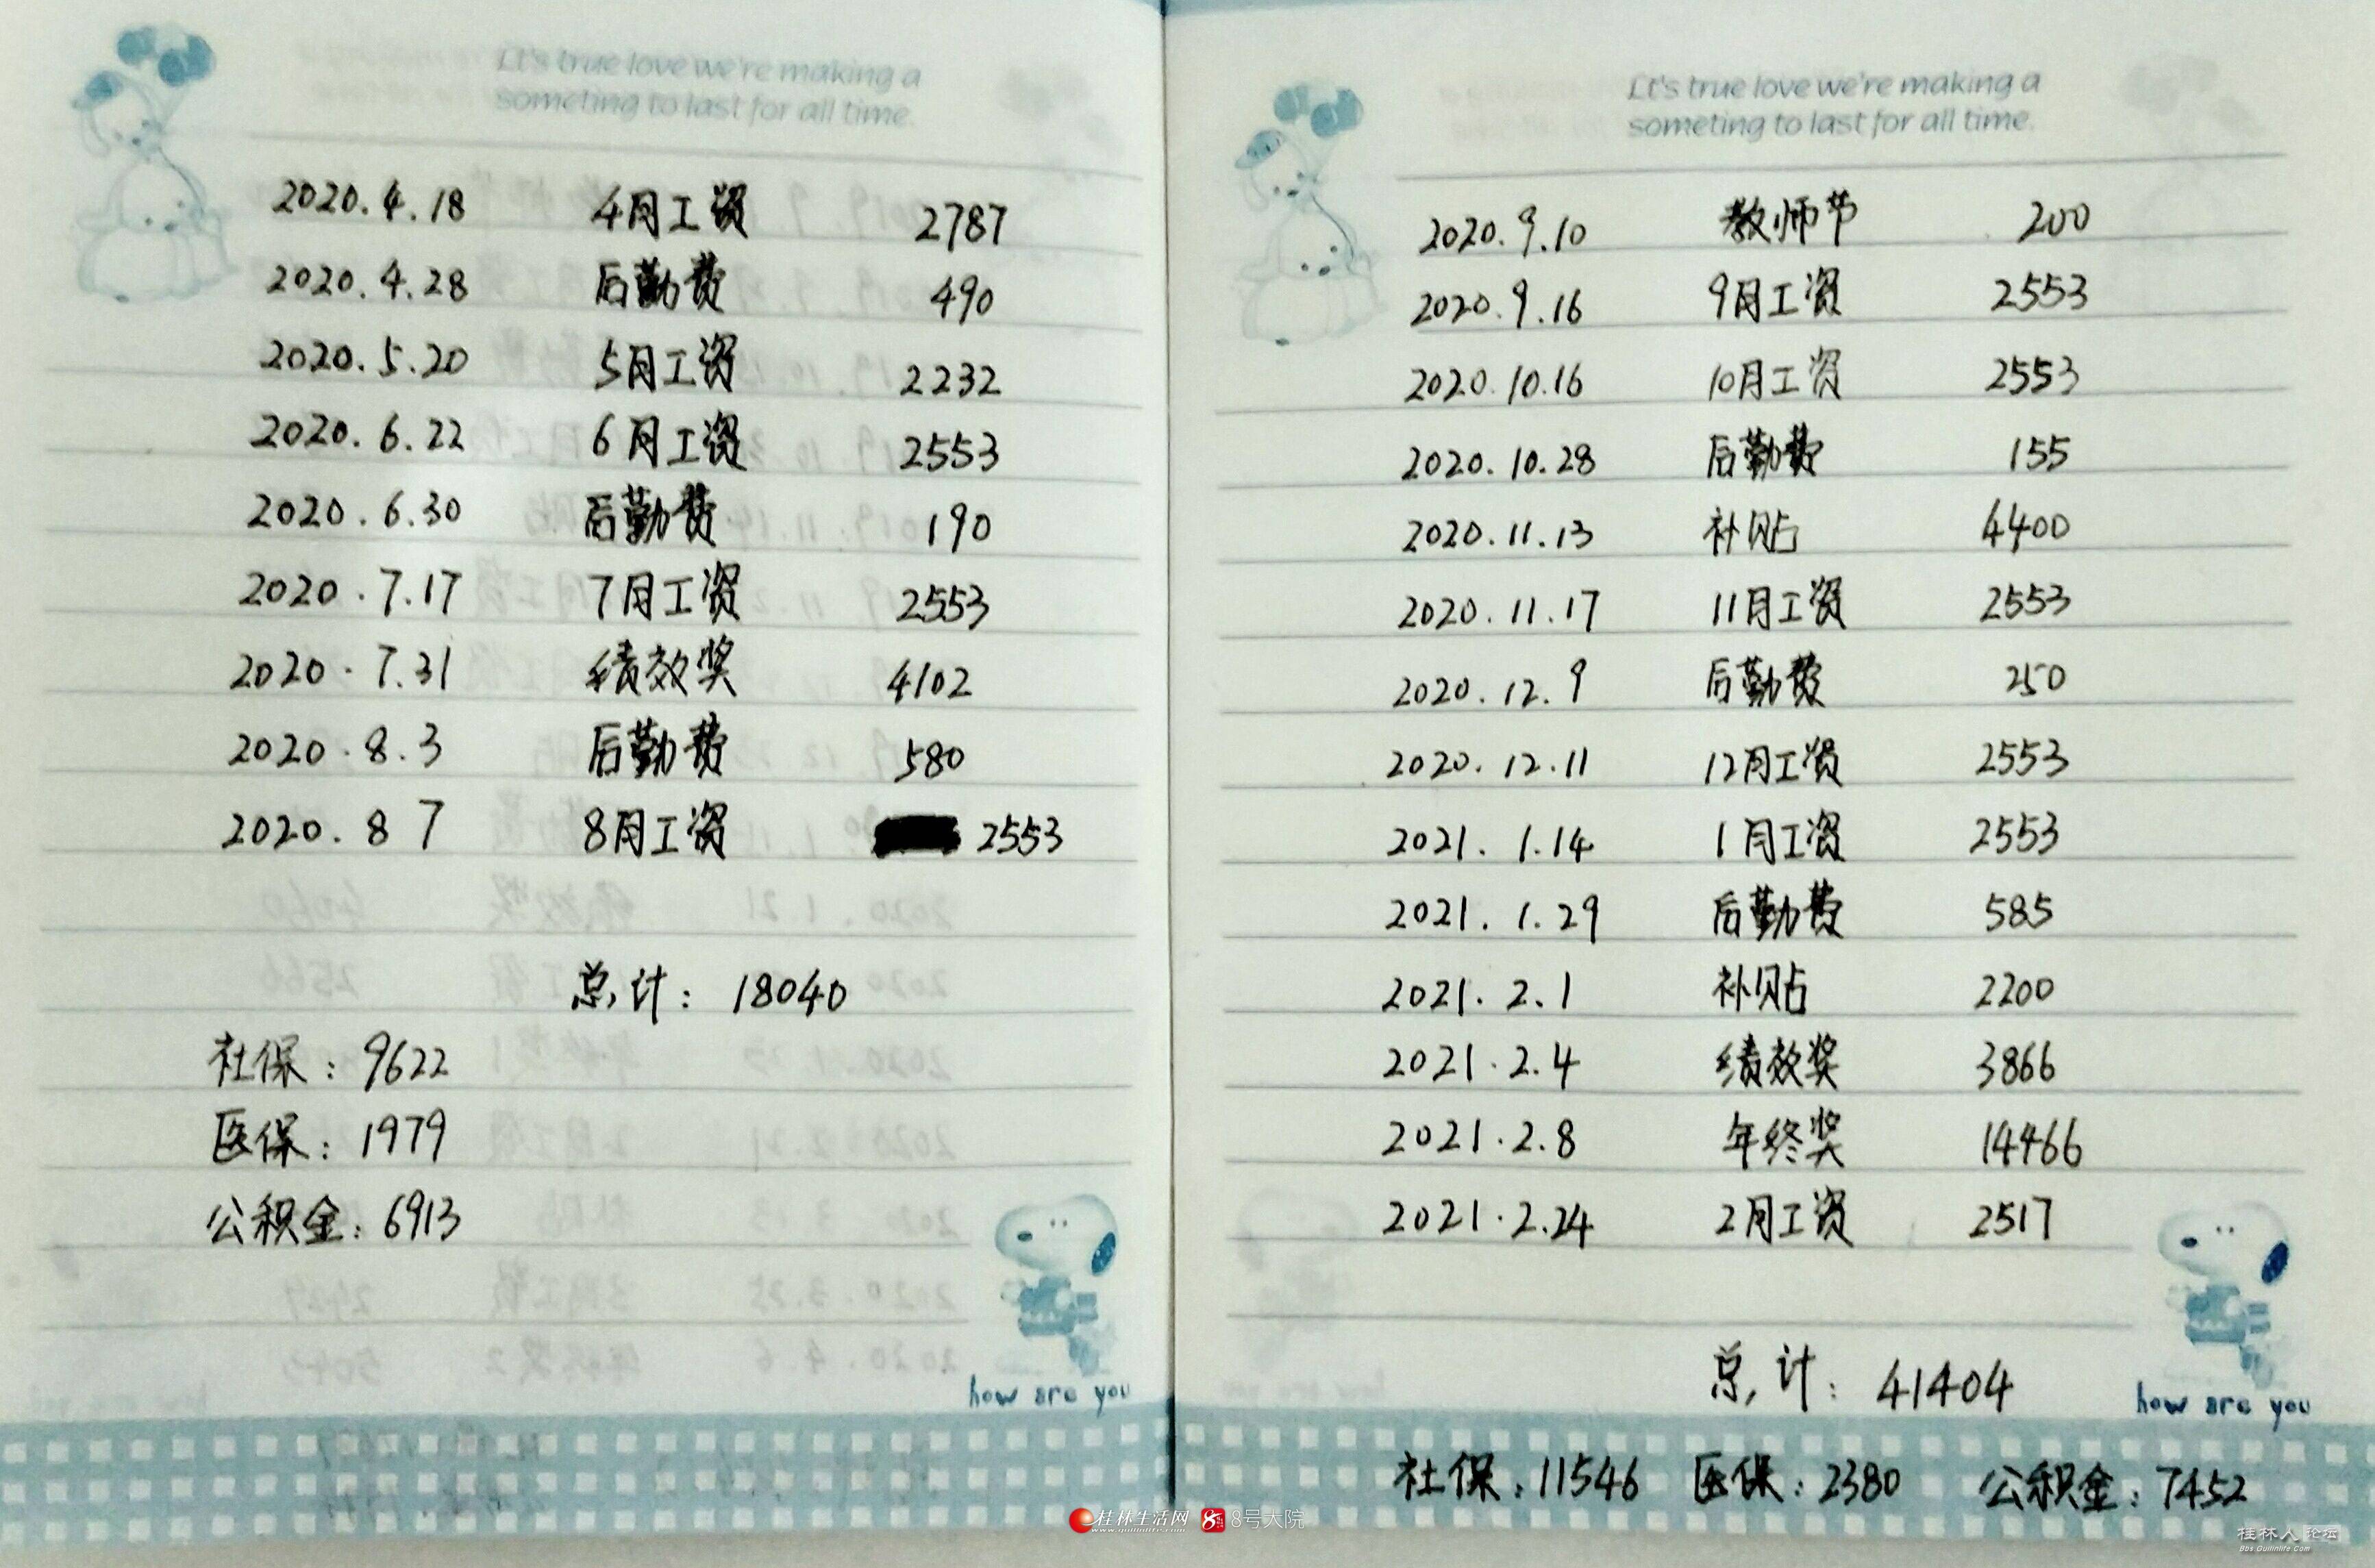 Lt's true love we're making a
someting to last for all time.
2020.4.18 4月工资 2787
2020.4.28 后勤费 490
2020.5.20 5月工资 2232
2020.6.22 6月工资 2553
2020.6.30 后勤费 190
2020.7.17 7月工资 2553
2020.7.31 绩效奖 4102
2020.8.3 后勤费 580
2020.8 7 8月工资 2553
总计：18040
社保：9622
医保：1979
公积金：6913
how are you
Lt's true love we're making a
someting to last for all time.
2020.9.10 教师节 200
2020.9.16 9月工资 2553
2020.10.16 10月工资 2553
2020.10.28 后勤费 155
2020.11.13 补贴 4400
2020.11.17 11月工资 2553
2020.12.9 后勤费 250
2020.12.11 12月工资 2553
2021.1.14 1月工资 2553
2021.1.29 后勤费 585
2021.2.1 补贴 2200
2021.2.4 绩效奖 3866
2021.2.8 年终奖 14466
2021.2.24 2月工资 2517
总计：41404
how are you
社保：11546 医保：2380 公积金：7452
桂林生活网 8号大院
www.guilinlife.com
桂林人论坛
Bbs.Guilinlife.Com